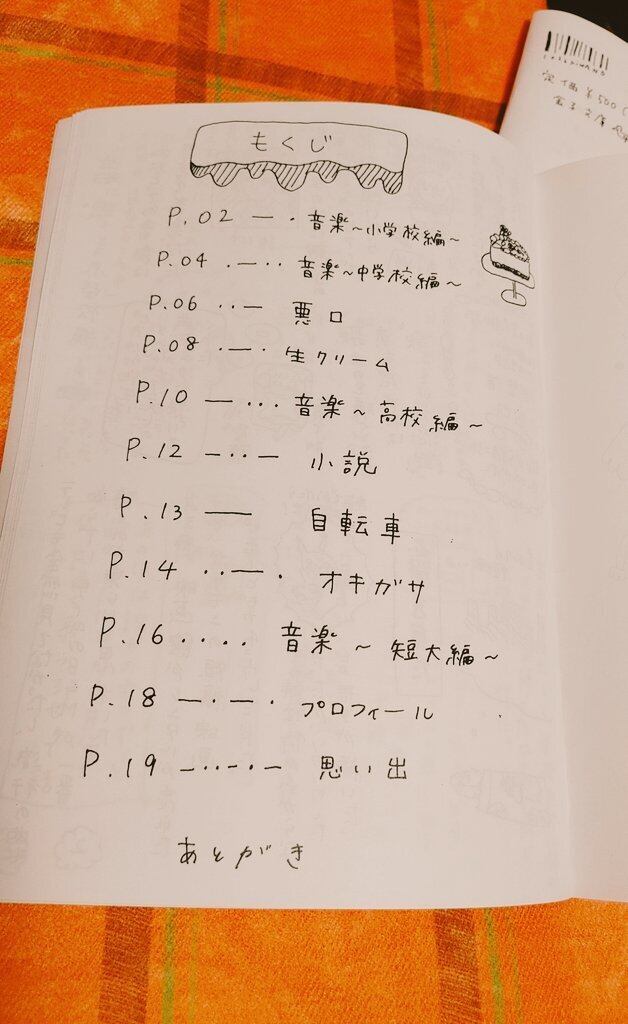 もくじ
P.02 ― · 音楽～小学校編～
P.04 ·―·· 音楽～中学校編～
P.06 ··― 悪口
P.08 ·―· 生クリーム
P.10 ―··· 音楽～高校編～
P.12 ―··― 小説
P.13 ―― 自転車
P.14 ··―· オキガサ
P.16 ···· 音楽～短大編～
P.18 ―·―· プロフィール
P.19 ―··―·― 思い出
あとがき
定価￥500(